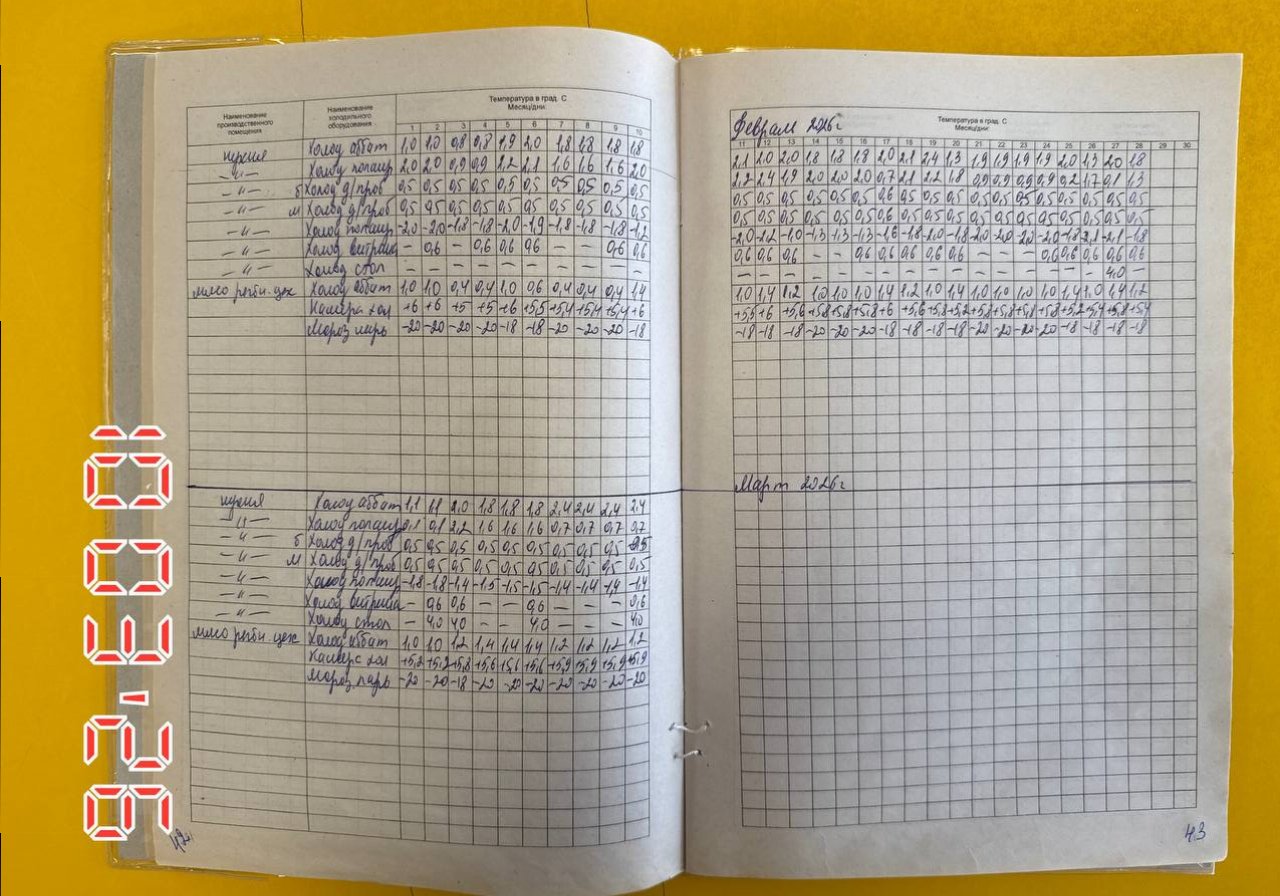 Наименование производственного помещения
Наименование холодильного оборудования
Температура в град. С
Месяц/дни
1 2 3 4 5 6 7 8 9 10
кухня Холод аббат 1,0 1,0 0,8 0,8 1,9 2,0 1,8 1,8 1,8 1,8
-"- Холод 2,0 2,0 0,9 0,9 2,2 2,1 1,6 1,6 1,6 2,0
-"- б Холод д/проб 0,5 0,5 0,5 0,5 0,5 0,5 0,5 0,5 0,5 0,5
-"- м Холод д/проб 0,5 0,5 0,5 0,5 0,5 0,5 0,5 0,5 0,5 0,5
-"- Холод -2,0 -2,0 -1,8 -1,8 -2,0 -1,9 -1,8 -1,8 -1,8 -1,2
-"- Холод витрина – 0,6 – 0,6 0,6 0,6 – – 0,6 0,6
-"- Холод стол – – – – – – – – – –
цех Холод аббат 1,0 1,0 0,4 0,4 1,0 0,6 0,4 0,4 0,4 1,4
Камера хол +6 +6 +5 +5 +6 +5,5 +5,4 +5,4 +5,4 +6
Мороз ларь -20 -20 -20 -20 -18 -18 -20 -20 -20 -18
кухня Холод аббат 1,1 1,1 2,0 1,8 1,8 1,8 2,4 2,4 2,4 2,4
-"- Холод 0,1 0,1 2,2 1,6 1,6 1,6 0,7 0,7 0,7 0,7
-"- б Холод д/проб 0,5 0,5 0,5 0,5 0,5 0,5 0,5 0,5 0,5 0,5
-"- м Холод д/проб 0,5 0,5 0,5 0,5 0,5 0,5 0,5 0,5 0,5 0,5
-"- Холод -1,8 -1,8 -1,4 -1,5 -1,5 -1,5 -1,4 -1,4 -1,4 -1,4
-"- Холод витрина – 0,6 0,6 – – 0,6 – – – 0,6
-"- Холод стол – 4,0 4,0 – – 4,0 – – – 4,0
цех Холод аббат 1,0 1,0 1,2 1,4 1,4 1,4 1,2 1,2 1,2 1,2
Камера хол +5,2 +5,2 +5,8 +5,6 +5,6 +5,6 +5,9 +5,9 +5,9 +5,9
Мороз ларь -20 -20 -18 -20 -20 -20 -20 -20 -20 -20
42
Февраль 2026г
Температура в град. С
Месяц/дни
11 12 13 14 15 16 17 18 19 20 21 22 23 24 25 26 27 28 29 30
2,1 2,0 2,0 1,8 1,8 1,8 2,0 2,1 2,4 1,3 1,9 1,9 1,9 1,9 2,0 1,3 2,0 1,8
2,2 2,4 1,9 2,0 2,0 2,0 0,7 2,1 2,2 1,8 0,9 0,9 0,9 0,9 0,2 1,7 0,1 1,3
0,5 0,5 0,5 0,5 0,5 0,5 0,6 0,5 0,5 0,5 0,5 0,5 0,5 0,5 0,5 0,5 0,5 0,5
0,5 0,5 0,5 0,5 0,5 0,5 0,6 0,5 0,5 0,5 0,5 0,5 0,5 0,5 0,5 0,5 0,5 0,5
-2,0 -2,2 -1,0 -1,3 -1,3 -1,3 -1,6 -1,8 -2,0 -1,8 -2,0 -2,0 -2,0 -2,0 -1,8 -2,1 -2,1 -1,8
0,6 0,6 0,6 – – 0,6 0,6 0,6 0,6 0,6 – – – 0,6 0,6 0,6 0,6 0,6
– – – – – – – – – – – – – – – – 4,0 –
1,0 1,4 1,2 1,0 1,0 1,0 1,4 1,2 1,0 1,4 1,0 1,0 1,0 1,0 1,4 1,0 1,4 1,2
+5,5 +6 +5,6 +5,8 +5,8 +5,8 +6 +5,6 +5,8 +5,2 +5,8 +5,8 +5,8 +5,8 +5,2 +5,4 +5,8 +5,4
-18 -18 -18 -20 -20 -20 -18 -18 -18 -18 -20 -20 -20 -20 -18 -18 -18 -18
Март 2026г
43
10 03 '26